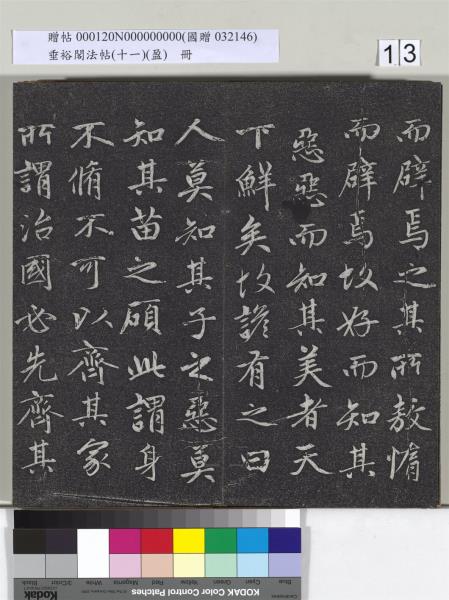 贈帖 000120N000000000(國贈 032146)
垂裕閣法帖(十一)(盈) 冊
13
而辟焉之其所敖惰
而辟焉故好而知其
惡惡而知其美者天
下鮮矣故諺有之曰
人莫知其子之惡莫
知其苗之碩此謂身
不脩不可以齊其家
所謂治國必先齊其
KODAK Color Control Patches
Blue Cyan Green Yellow Red Magenta White 3/Color Black